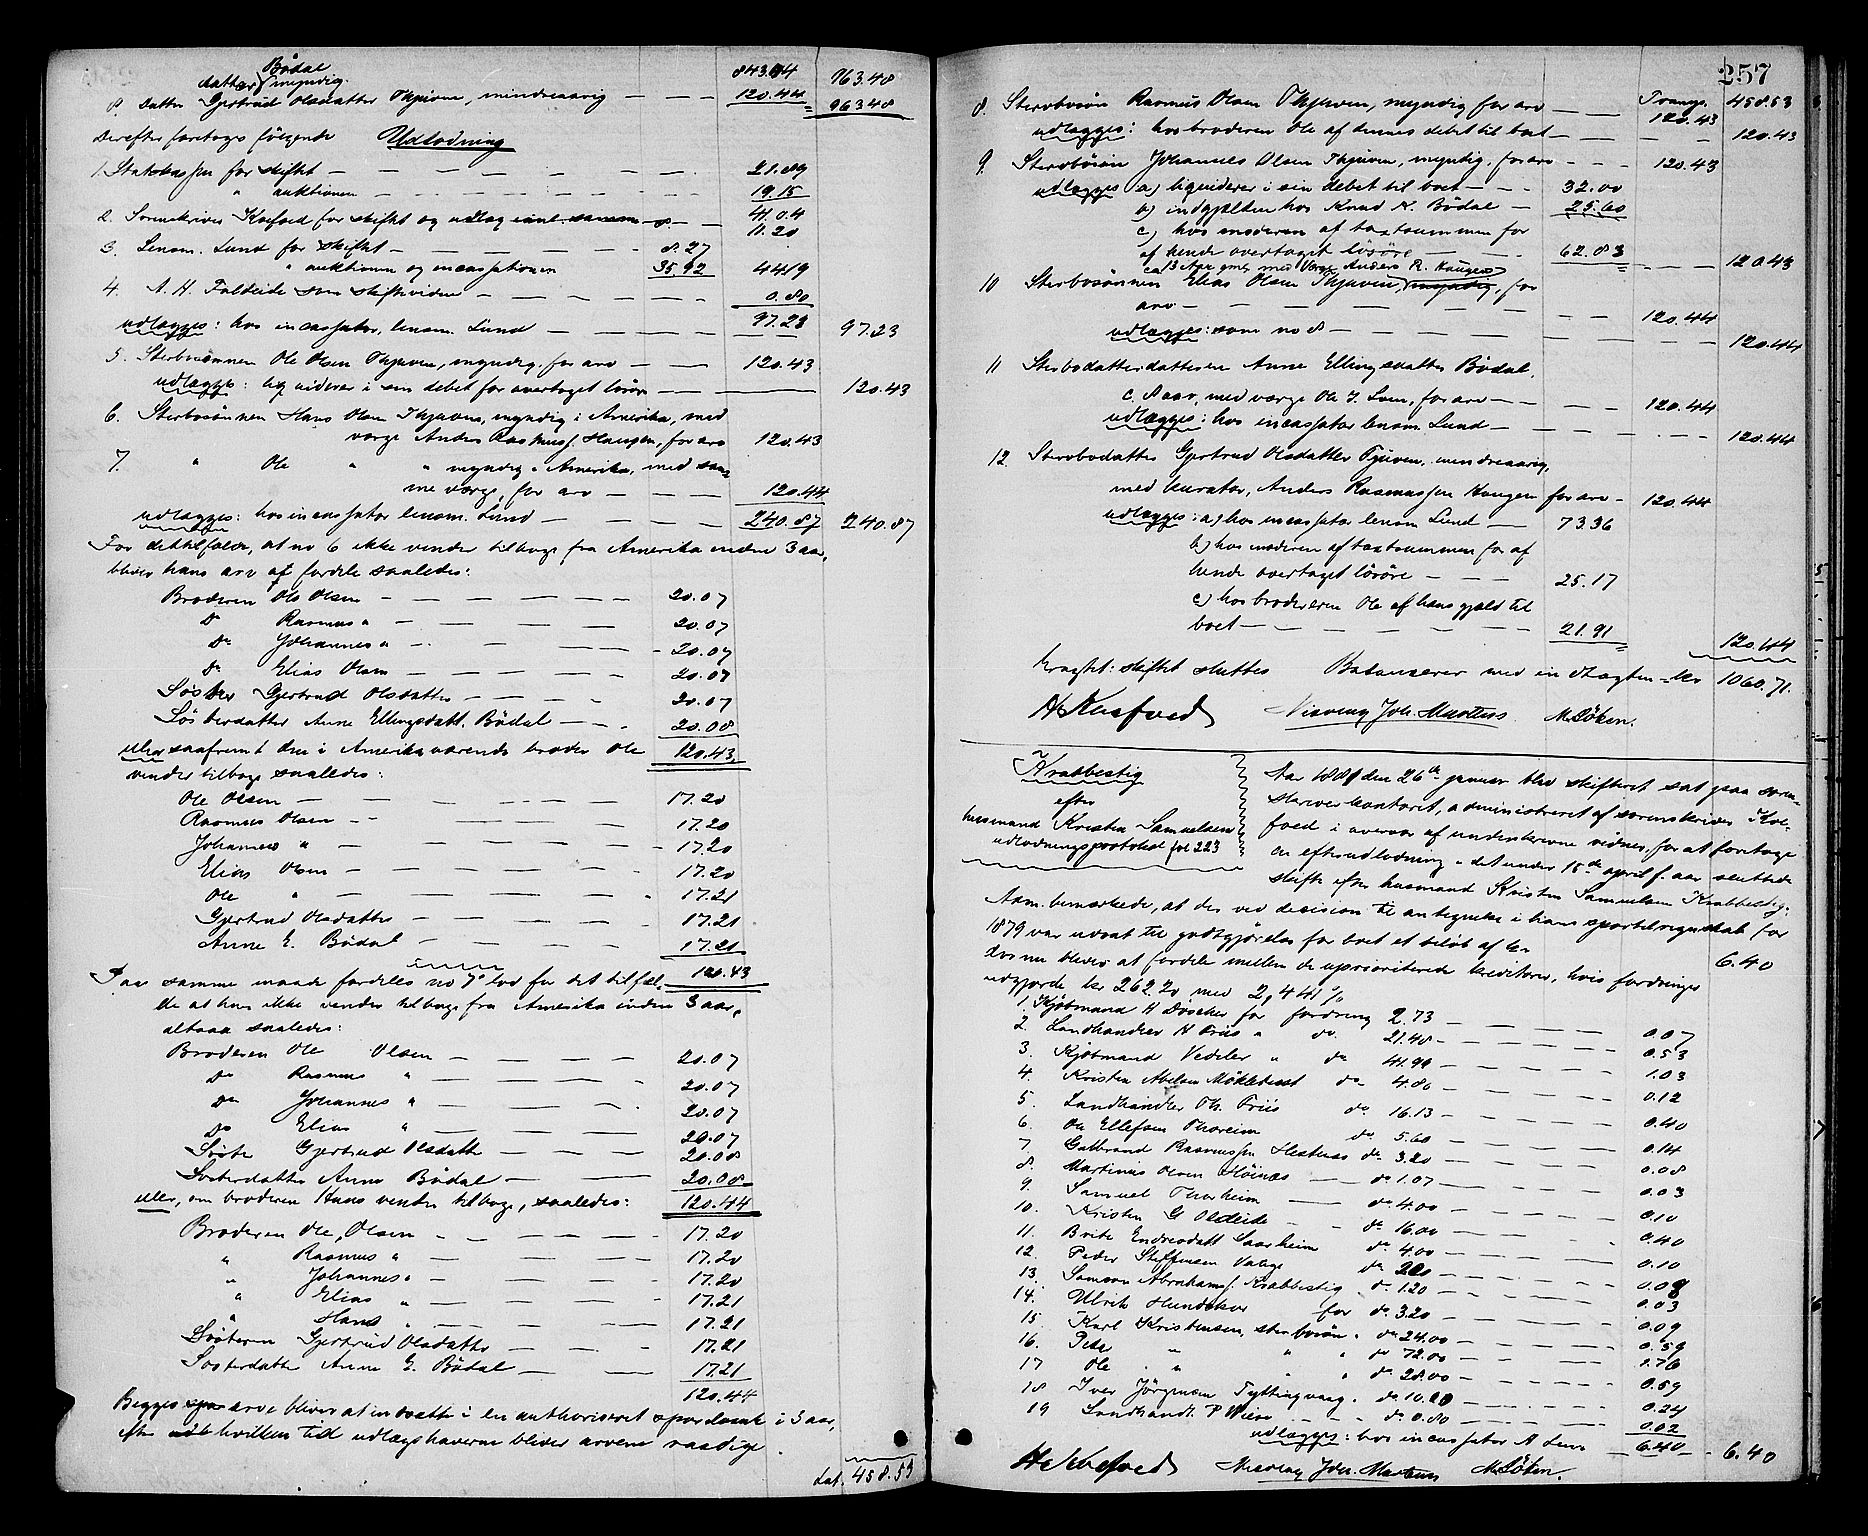 Bødal
datter myndig. 843.04 963.48
8. datter Gjertrud Olsdatter Thjuven, mindreaarig — — — 120.44 963.48
Derefter foretoges følgende Udlodning
1. Statskassen for skiftet — — — 21.89
" auktionen — — — 19.15
41.04
2. Sorenskriver Koefoed for skiftet og udlæg — 11.20
3. Lensm. Lund for skiftet — — — 8.27
" auktionen og incassationen 35.92 44.19
4. A. H. Faldeide som skiftevidne — — — 0.80
udlægges: hos incassator, lensm. Lund — — — 97.23 97.23
5. Sterbosønnen Ole Olsen Thjuven, myndig, for arv — — 120.43
udlægges: liqviderer i sin debet for overtaget løsøre — — 120.43
6. Sterbosønnen Hans Olsen Thjuven, myndig i Amerika, med
værge Anders Rasmuss. Haugen, for arv 120.43
7. " Ole " " myndig i Amerika, med sam-
me værge, for arv — — — 120.44
udlægges: hos incassator lensm. Lund — — — 240.87 240.87
For det tilfælde, at no 6 ikke vender tilbage fra Amerika inden 3 aar,
bliver hans arv at fordele saaledes:
Broderen Ole Olsen — — — 20.07
do Rasmus " — — — 20.07
do Johannes " — — — 20.07
do Elias Olsen — — — 20.07
Søster Gjertrud Olsdatter — — — 20.07
Søsterdatter Anne Ellingsdatt. Bødal — — 20.08
eller saafremt den i Amerika værende broder Ole 120.43
vender tilbage saaledes:
Ole Olsen — — — 17.20
Rasmus Olsen — — — 17.20
Johannes " — — — 17.20
Elias Olsen — — — 17.20
Ole " — — — 17.21
Gjertrud Olsdatter — — — 17.21
Anne E. Bødal — — — 17.21
120.43
Paa samme maade fordeles no 7s lod for det tilfæl-
de at han ikke vender tilbage fra Amerika inden 3 aar,
altsaa saaledes:
Broderen Ole Olsen — — — 20.07
do Rasmus " — — — 20.07
do Johannes " — — — 20.07
do Elias " — — — 20.07
Søster Gjertrud Olsdatter — — — 20.08
Søsterdatter Anne Bødal — — — 20.08
eller, om broderen Hans vender tilbage, saaledes: 120.44
Broderen Ole Olsen — — — 17.20
" Rasmus " — — — 17.20
" Johannes " — — — 17.20
" Elias " — — — 17.21
" Hans " — — — 17.21
Søsteren Gjertrud Olsdatter — — — 17.21
Søsterdatter Anne E. Bødal — — — 17.21
120.44
Begges arv bliver at indsætte i en authoriseret sparebank i 3 aar,
efter hvilken tid udlægshaverne bliver arvene raadige.
Lat. 458.53
257
Transp. 458.53
8. Sterbosøn Rasmus Olsen Thjuven, myndig for arv — — 120.43
udlægges: hos broderen Ole af dennes debet til boet — — — 120.43
9. Sterbosøn Johannes Olsen Thjuven, myndig, for arv — — — 120.43
udlægges a) liqviderer i sin debet til boet — — — 32.00
b) indgjælden hos Knud K. Bødal — 25.60
c) hos moderen af taxtsummen for
af hende overtaget løsøre — — — 62.83 — — — 120.43
ca 13 Aar med Værge Anders R. Haugen
10 Sterbosønnen Elias Olsen Thjuven, myndig, for
arv — — — 120.44
udlægges: som no 8 — — — 120.44
11 Sterbodatterdatteren Anne Ellingsdatter Bødal,
c. 8 aar, med værge Ole J. Loen, for arv — — — 120.44
udlægges: hos incassator lensm. Lund — — — 120.44
12. Sterbodatter Gjertrud Olsdatter Tjuven, mindreaarig,
med kurator, Anders Rasmussen Haugen for arv — 120.44
udlægges: a) hos incassator lensm Lund — 73.36
b) hos moderen af taxtsummen for af
hende overtaget løsøre — — — 25.17
c) hos broderen Ole af hans gjæld til
boet — — — 21.91 120.44
skiftet sluttes Balancerer med indtægten — kr 1060.71.
H Koefoed Nicolay Joh. Martens M. Løken.
Krabbestig
efter
husmand Kristen Samuelsen
udlodningsprotokol fol 223
Aar 1881 den 26de januar blev skifteret sat paa soren-
skriverkontoret, administreret af sorenskriver Koe-
foed i overvær af underskrevne vidner, for at foretage
en efterudlodning i det under 15de april f. aar sluttede
skifte efter husmand Kristen Samuelsen Krabbestig.
Adm. bemærkede, at der ved decision til antegnelse i hans sportelregnskab for
1879 var udsat til godtgjørelse for boet et beløb af kr 6.40
der nu bliver at fordele mellem de uprioriterede kreditorer, hvis fordringer
udgjorde kr 262.20 med 2,441 %
1. Kjøbmand H Døscher for fordring 2.73 — — — 0.07
2. Landhandler H Friis " do 21.48 — — — 0.53
3. Kjøbmand Vedeler " do 41.99 — — — 1.03
4. Kristen Abelsen Møklebust do 4.80 — — — 0.12
5. Landhandler Oh. Friis do 16.13 — — — 0.40
6. Ole Ellefsen Thoreim do 5.60 — — — 0.14
7. Gulbrand Rasmussen Hestenes do 3.20 — — — 0.08
8. Martinus Olsen Høines — do 1.07 — — — 0.03
9. Samuel Thorheim — do 4.00 — — — 0.10
10. Kristen G Oldeide — do 16.00 — — — 0.40
11. Brite Endresdatt Saarheim do 4.00 — — — 0.10
12. Peder Steffensen Vaage do — — — 0.08
13. Samson Abrahams. Krabbestig do 1.20 — — — 0.03
14. Ulrik Hundskar for do 3.20 — — — 0.09
15. Karl Kristensen, sterbosøn " do 24.00 — — — 0.59
16. Peder " " " do 72.00 — — — 1.76
17 Ole " " " do 28.00 — — — 0.69
18 Iver Jørgensen Tyttingvaag. do 10.00 — — — 0.24
19 Landhandl. P Wiese — do 0.80 — — — 0.02
udlægges: hos incassator A Lem — 6.40 — 6.40
H Koefoed Nicolay Joh. Martens M. Løken.